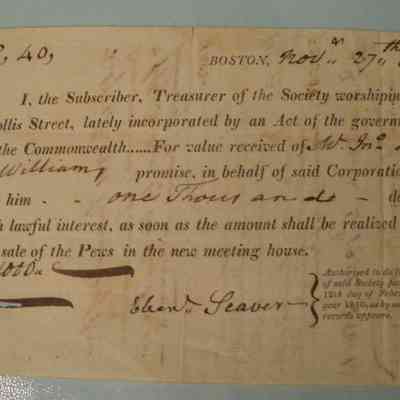 , 40,
BOSTON, Novr 27th
I, the Subscriber, Treasurer of the Society worshiping
ollis Street, lately incorporated by an Act of the govern
the Commonwealth......For value received of Mr. Jno.
Williams promise, in behalf of said Corporatio
him - - one Thousand - do
h lawful interest, as soon as the amount shall be realized
sale of the Pews in the new meeting house.
Ebenr Seaver
Authorised to do
of said Society
12th day of Febr
year 1810, as by
records appears.